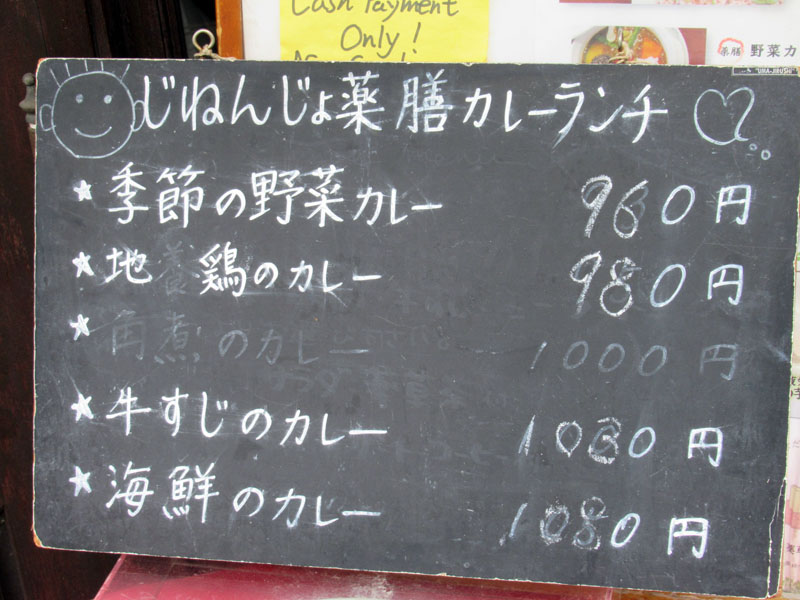 Cash Payment
Only!
薬膳 野菜カ
"UMA-JIRUSHI"
じねんじょ薬膳カレーランチ
★季節の野菜カレー 960円
★地鶏のカレー 980円
★角煮のカレー 1000円
★牛すじのカレー 1030円
★海鮮のカレー 1080円